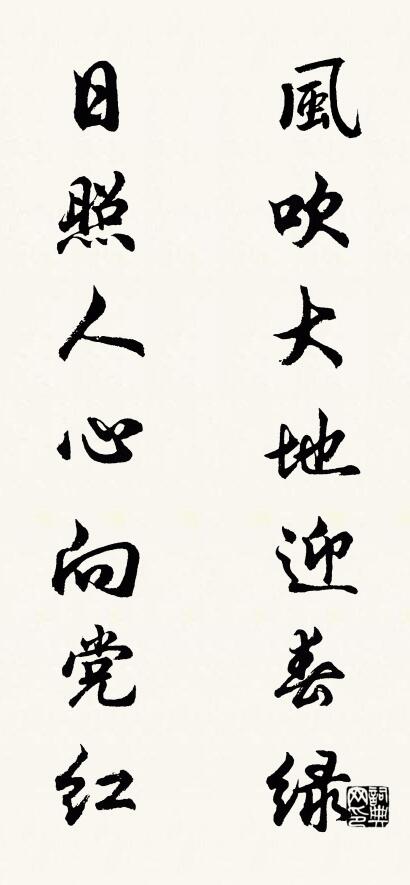 風吹大地迎春绿
日照人心向党红
詞典网印